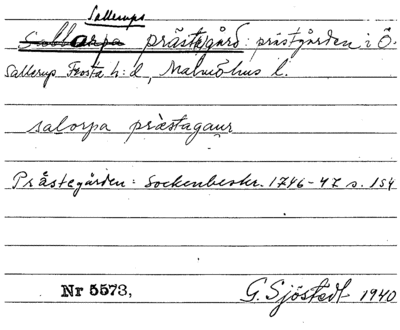 Sallerups
Sallarpa prästgård: prästgården i Ö.
Sallerup Frosta h:d, Malmöhus l.
salorpa præstagaur
Prästegården: Sockenbeskr. 1746-47 s. 154
Nr 5573,
G. Sjöstedt 1940